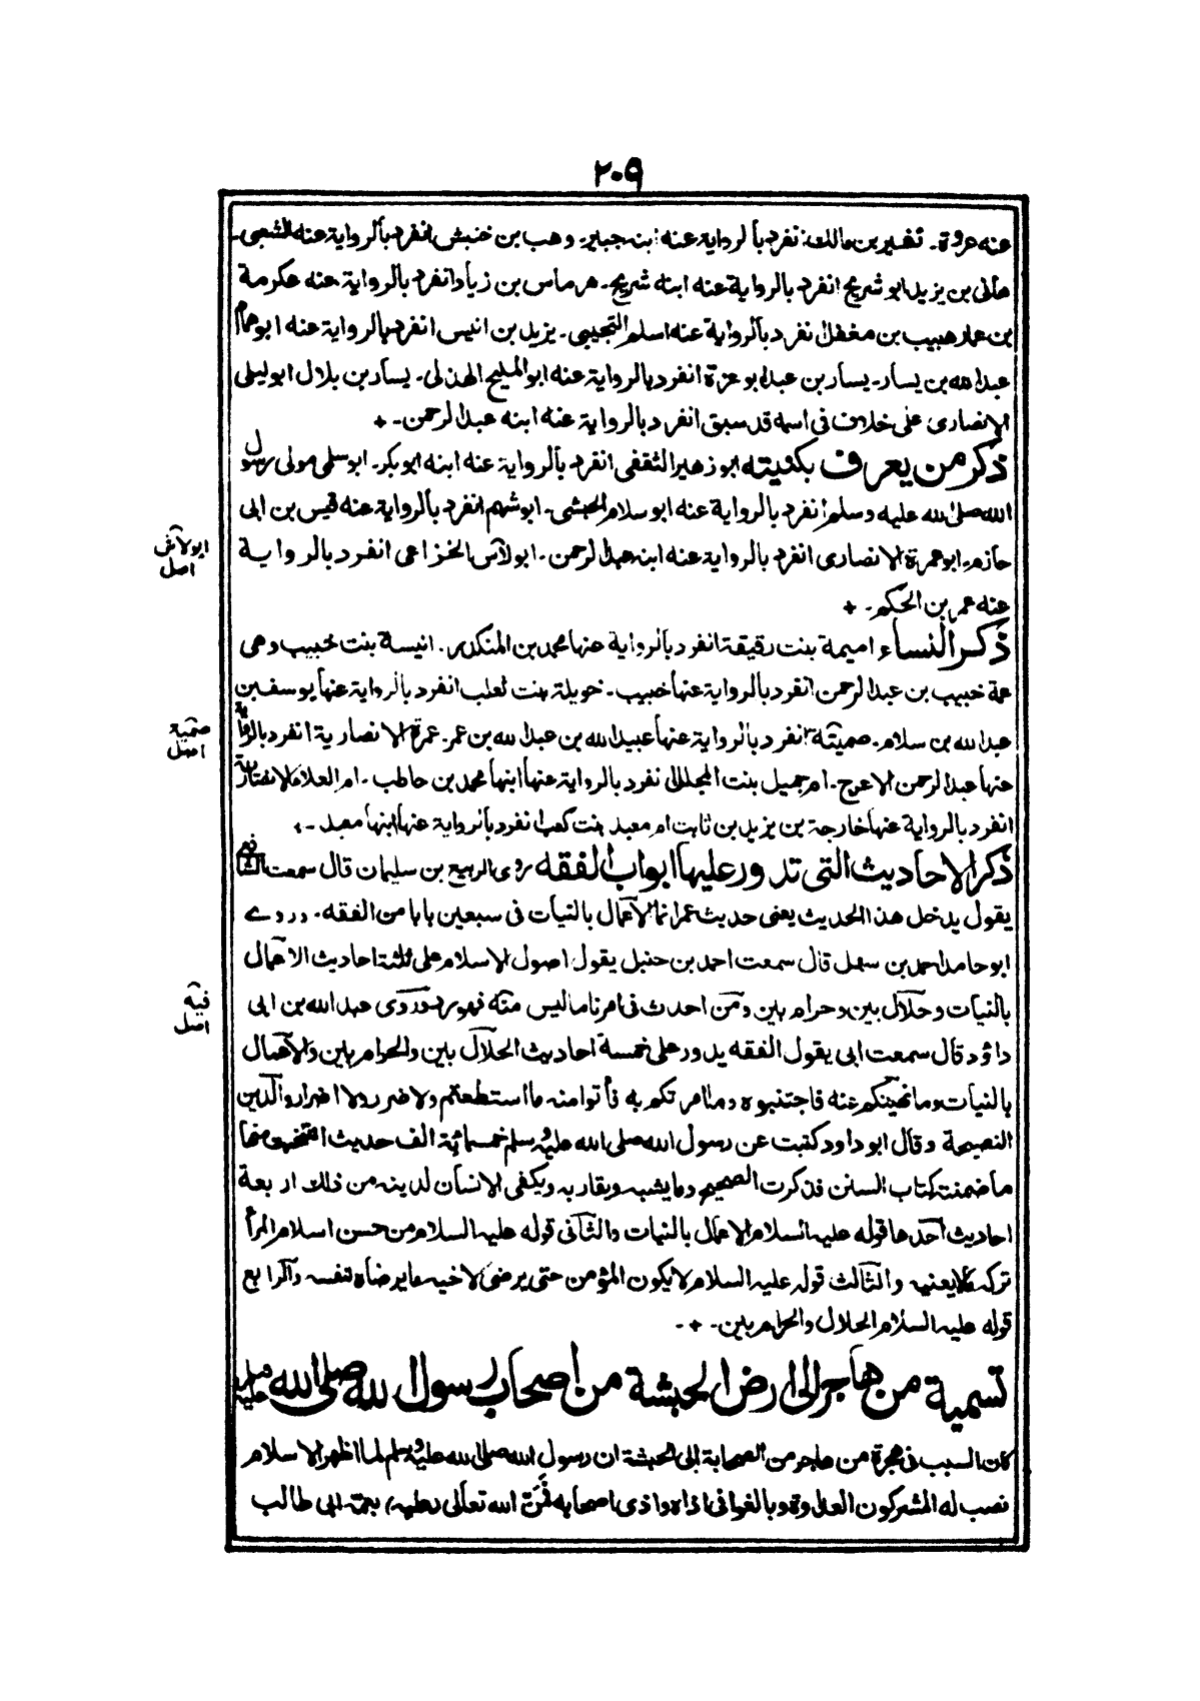 ٢٠٩
عنه عروة۔ نفير بن مالك انفرد بالرواية عنه ابنه جبير۔ وهب بن خنبش انفرد بالرواية عنه الشعبى۔
هانى بن يزيد ابو شريح انفرد بالرواية عنه ابنه شريح۔ هرماس بن زياد انفرد بالرواية عنه عكرمة
بن عمار هبيب بن مغفل انفرد بالرواية عنه اسلم التجيبى۔ يزيد بن انيس انفرد بالرواية عنه ابو همام
عبد الله بن يسار۔ يسار بن عبد ابو عزة انفرد بالرواية عنه ابو المليح الهذلى۔ يسار بن بلال ابو ليلى
الانصارى على خلاف فى اسمه قد سبق انفرد بالرواية عنه ابنه عبد الرحمن۔ +
ذكر من يعرف بكنيته ابو زهير الثقفى انفرد بالرواية عنه ابنه ابو بكر۔ ابو سلمى مولى رسول
الله صلى الله عليه وسلم انفرد بالرواية عنه ابو سلام الحبشى۔ ابو شهم انفرد بالرواية عنه قيس بن ابى
حازم۔ ابو عمرة الانصارى انفرد بالرواية عنه ابنه عبد الرحمن۔ ابو لاس الخزاعى انفرد بالرواية
ابولاش
اصل
عنه عمر بن الحكم۔ +
ذكر النساء اميمة بنت رقيقة انفرد بالرواية عنها محمد بن المنكدر۔ انيسة بنت خبيب وهى
عمة خبيب بن عبد الرحمن انفرد بالرواية عنها خبيب۔ خويلة بنت ثعلب انفرد بالرواية عنها يوسف بن
عبد الله بن سلام۔ صميتة انفرد بالرواية عنها عبيد الله بن عبد الله بن عمر۔ عمرة الانصارية انفرد بالرواية
صمية
اصل
عنها عبد الرحمن الاعرج۔ ام جميل بنت المجلل انفرد بالرواية عنها ابنها محمد بن حاطب۔ ام العلاء الانصارية
انفرد بالرواية عنها خارجة بن يزيد بن ثابت ام معبد بنت كعب انفرد بالرواية عنها ابنها معبد۔ +
ذكر الاحاديث التى تدور عليها ابواب الفقه روى الربيع بن سليمان قال سمعت الشافعى
يقول يدخل هذا الحديث يعنى حديث عمر انما الاعمال بالنيات فى سبعين بابا من الفقه۔ وروے
ابو حامد احمد بن سهل قال سمعت احمد بن حنبل يقول اصول الاسلام على ثلثة احاديث الاعمال
بالنيات وحلال بين وحرام بين ومن احدث فى امرنا ما ليس منه فهو رد وروى عبد الله بن ابى
فيه
اصل
داؤد قال سمعت ابى يقول الفقه يدور على خمسة احاديث الحلال بين والحرام بين والاعمال
بالنيات وما نهيتكم عنه فاجتنبوه وما امرتكم به فأتوا منه ما استطعتم ولا ضرر ولا اضرار والدين
النصيحة وقال ابو داود كتبت عن رسول الله صلى الله عليه وسلم خمسمائة الف حديث انتخبت منها
ما ضمنت كتاب السنن فذكرت الصحيح وما يشبه ويقاربه ويكفى الانسان لدينه من ذلك اربعة
احاديث احدها قوله عليه السلام الاعمال بالنيات والثانى قوله عليه السلام من حسن اسلام المرأ
تركه مالا يعنيه والثالث قوله عليه السلام لا يكون المؤمن حتى يرضى لاخيه ما يرضاه لنفسه والرابع
قوله عليه السلام الحلال والحرام بين۔ + ۔
تسمية من هاجر الى ارض الحبشة من اصحاب رسول الله صلى الله عليه وسلم
كان السبب فى هجرة من هاجر من الصحابة الى الحبشة ان رسول الله صلى الله عليه وسلم لما اظهر الاسلام
نصب له المشركون العداوة وبالغوا فى اذاه واذى اصحابه فمن الله تعالى عليه بعمه ابى طالب